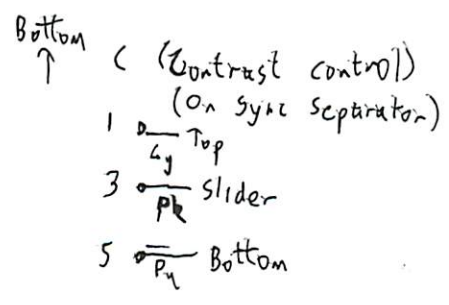 Bottom
C (Contrast control)
(on sync separator)
1 Top
Gy
3 Slider
Pk
5 Bottom
Pu